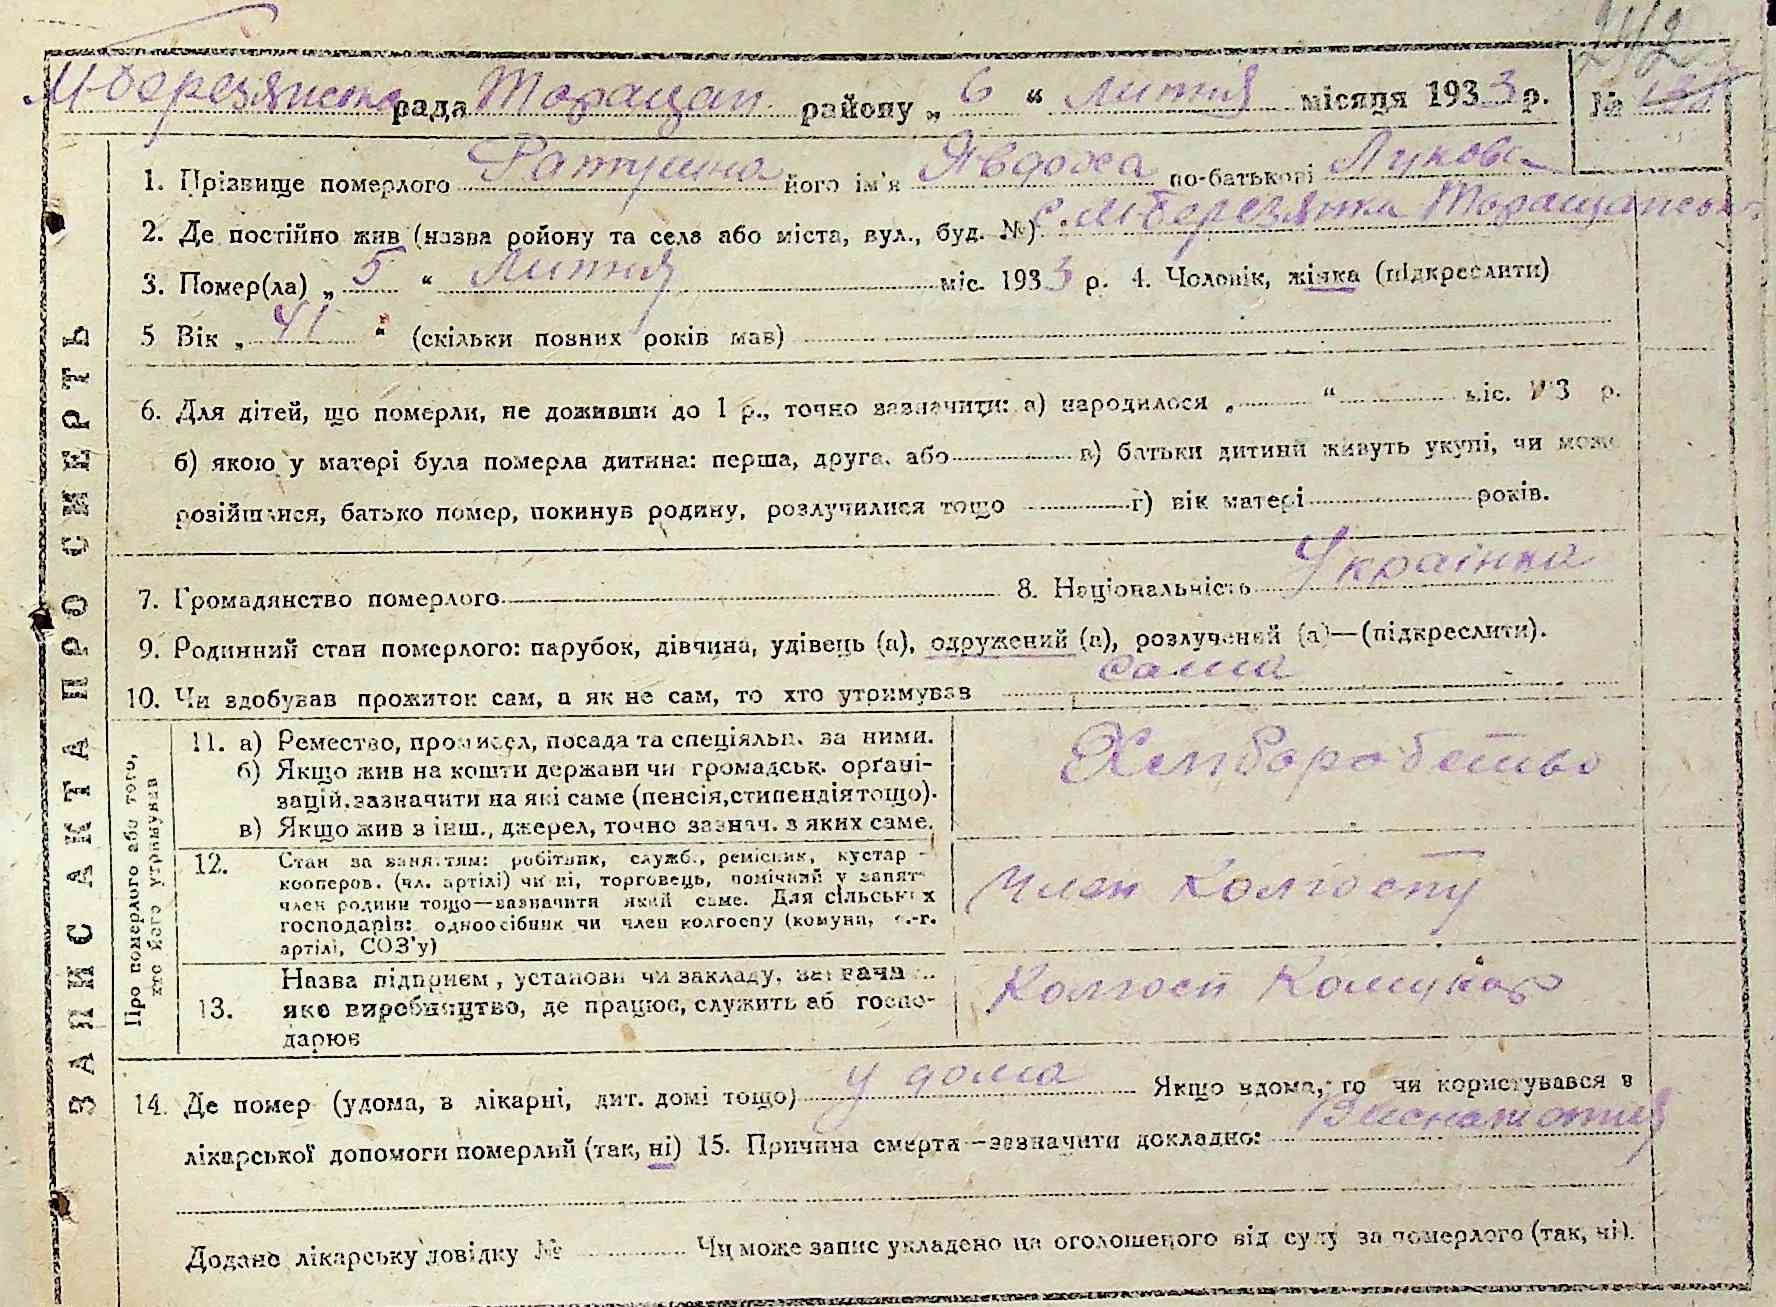 242
М-березянська рада Таращан. району „ 6 “ Лютня місяця 1933 р. №
ЗАПИС АКТА ПРО СМЕРТЬ
1. Прізвище померлого Ратушна його ім'я Явдоха по-батькові Лукова
2. Де постійно жив (назва ройону та села або міста, вул., буд. №) с. М-березянка Таращанськ.
3. Помер(ла) „ 5 “ Лютня міс. 1933 р. 4. Чоловік, жінка (підкреслити)
5 Вік „ 41 “ (скільки повних років мав)
6. Для дітей, що померли, не доживши до 1 р., точно зазначити: а) народилося „ “ міс. 193 р.
б) якою у матері була померла дитина: перша, друга, або в) батьки дитини живуть укупі, чи може
розійшлися, батько помер, покинув родину, розлучилися тощо г) вік матері років.
7. Громадянство померлого 8. Національність Українка
9. Родинний стан померлого: парубок, дівчина, удівець (а), одружений (а), розлучений (а)—(підкреслити).
10. Чи здобував прожиток сам, а як не сам, то хто утримував сама
Про померлого або того,
хто його утримував
11. а) Ремество, промисел, посада та спеціяльн. за ними.
б) Якщо жив на кошти держави чи громадськ. органі-
зацій, зазначити на які саме (пенсія, стипендія тощо).
в) Якщо жив з інш., джерел, точно зазнач. з яких саме.
Хлиборобство
12. Стан за заняттям: робітник, служб., ремісник, кустар -
кооперов. (чл. артілі) чи ні, торговець, помічний у занят-
член родини тощо—зазначити який саме. Для сільських
господарів: одноосібник чи член колгоспу (комуни, с.-г.
артілі, СОЗ'у)
Член колгоспу
13. Назва підприєм., установи чи закладу, зазнача
яке виробництво, де працює, служить аб госпо-
дарює
Колгосп Комунар
14. Де помер (удома, в лікарні, дит. домі тощо) у дома Якщо вдома, то чи користувався в
лікарської допомоги померлий (так, ні) 15. Причина смерти—зазначити докладно:
Додано лікарську довідку № Чи може запис укладено на оголошеного від суду за померлого (так, ні).